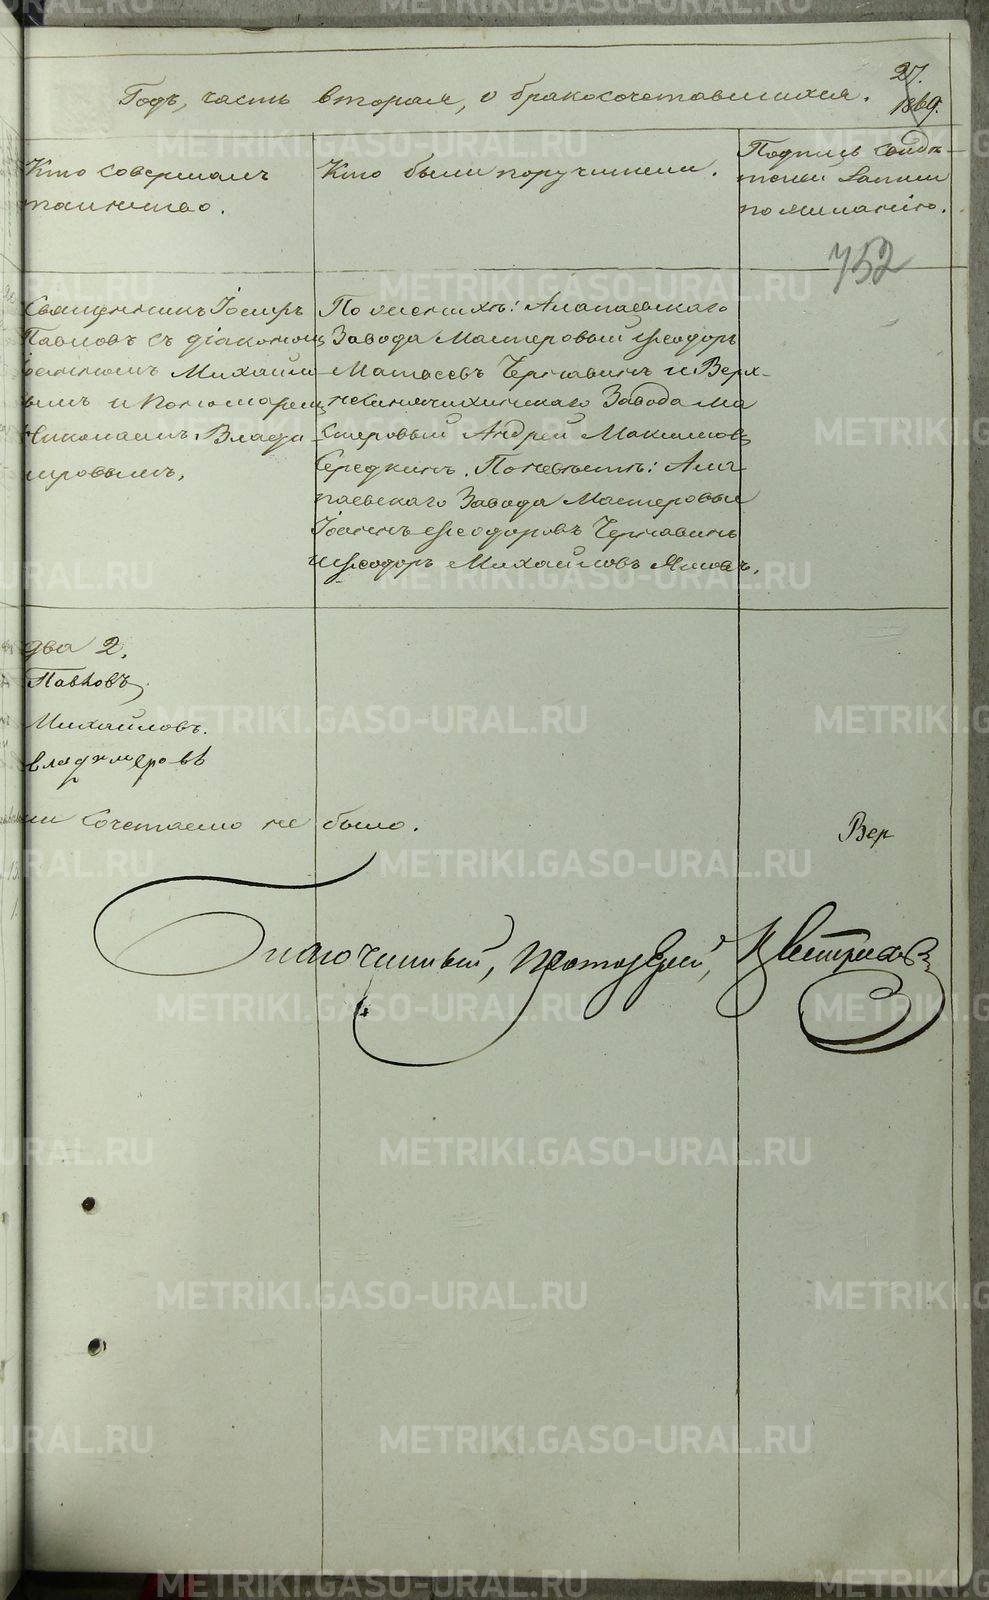 27.
Годъ, часть вторая, о бракосочетавшихся. 1869.
Кто совершалъ
таинство.
Кто были поручители.
Подпись свидѣ-
телей записи
по желанію.
752
Священникъ
Павловъ съ діакономъ
Михайло
вымъ и Пономаремъ
Николаемъ Влади
мировымъ.
По женихѣ: Алапаевскаго
Завода Мастеровый Ѳеодоръ
Матѳеевъ Чернавинъ и Верх-
несинячихинскаго Завода ма
стеровый Андрей Максимовъ
Середкинъ. По невѣстѣ: Ала
паевскаго Завода Мастеровые
Іоаннъ Ѳеодоровъ Чернавинъ
и Ѳеодоръ Михайловъ
два 2.
Павловъ
Михайловъ.
Владимировъ
сочетаемо не было.
Вер
Благочинный, Протоіерей,
METRIKI.GASO-URAL.RU